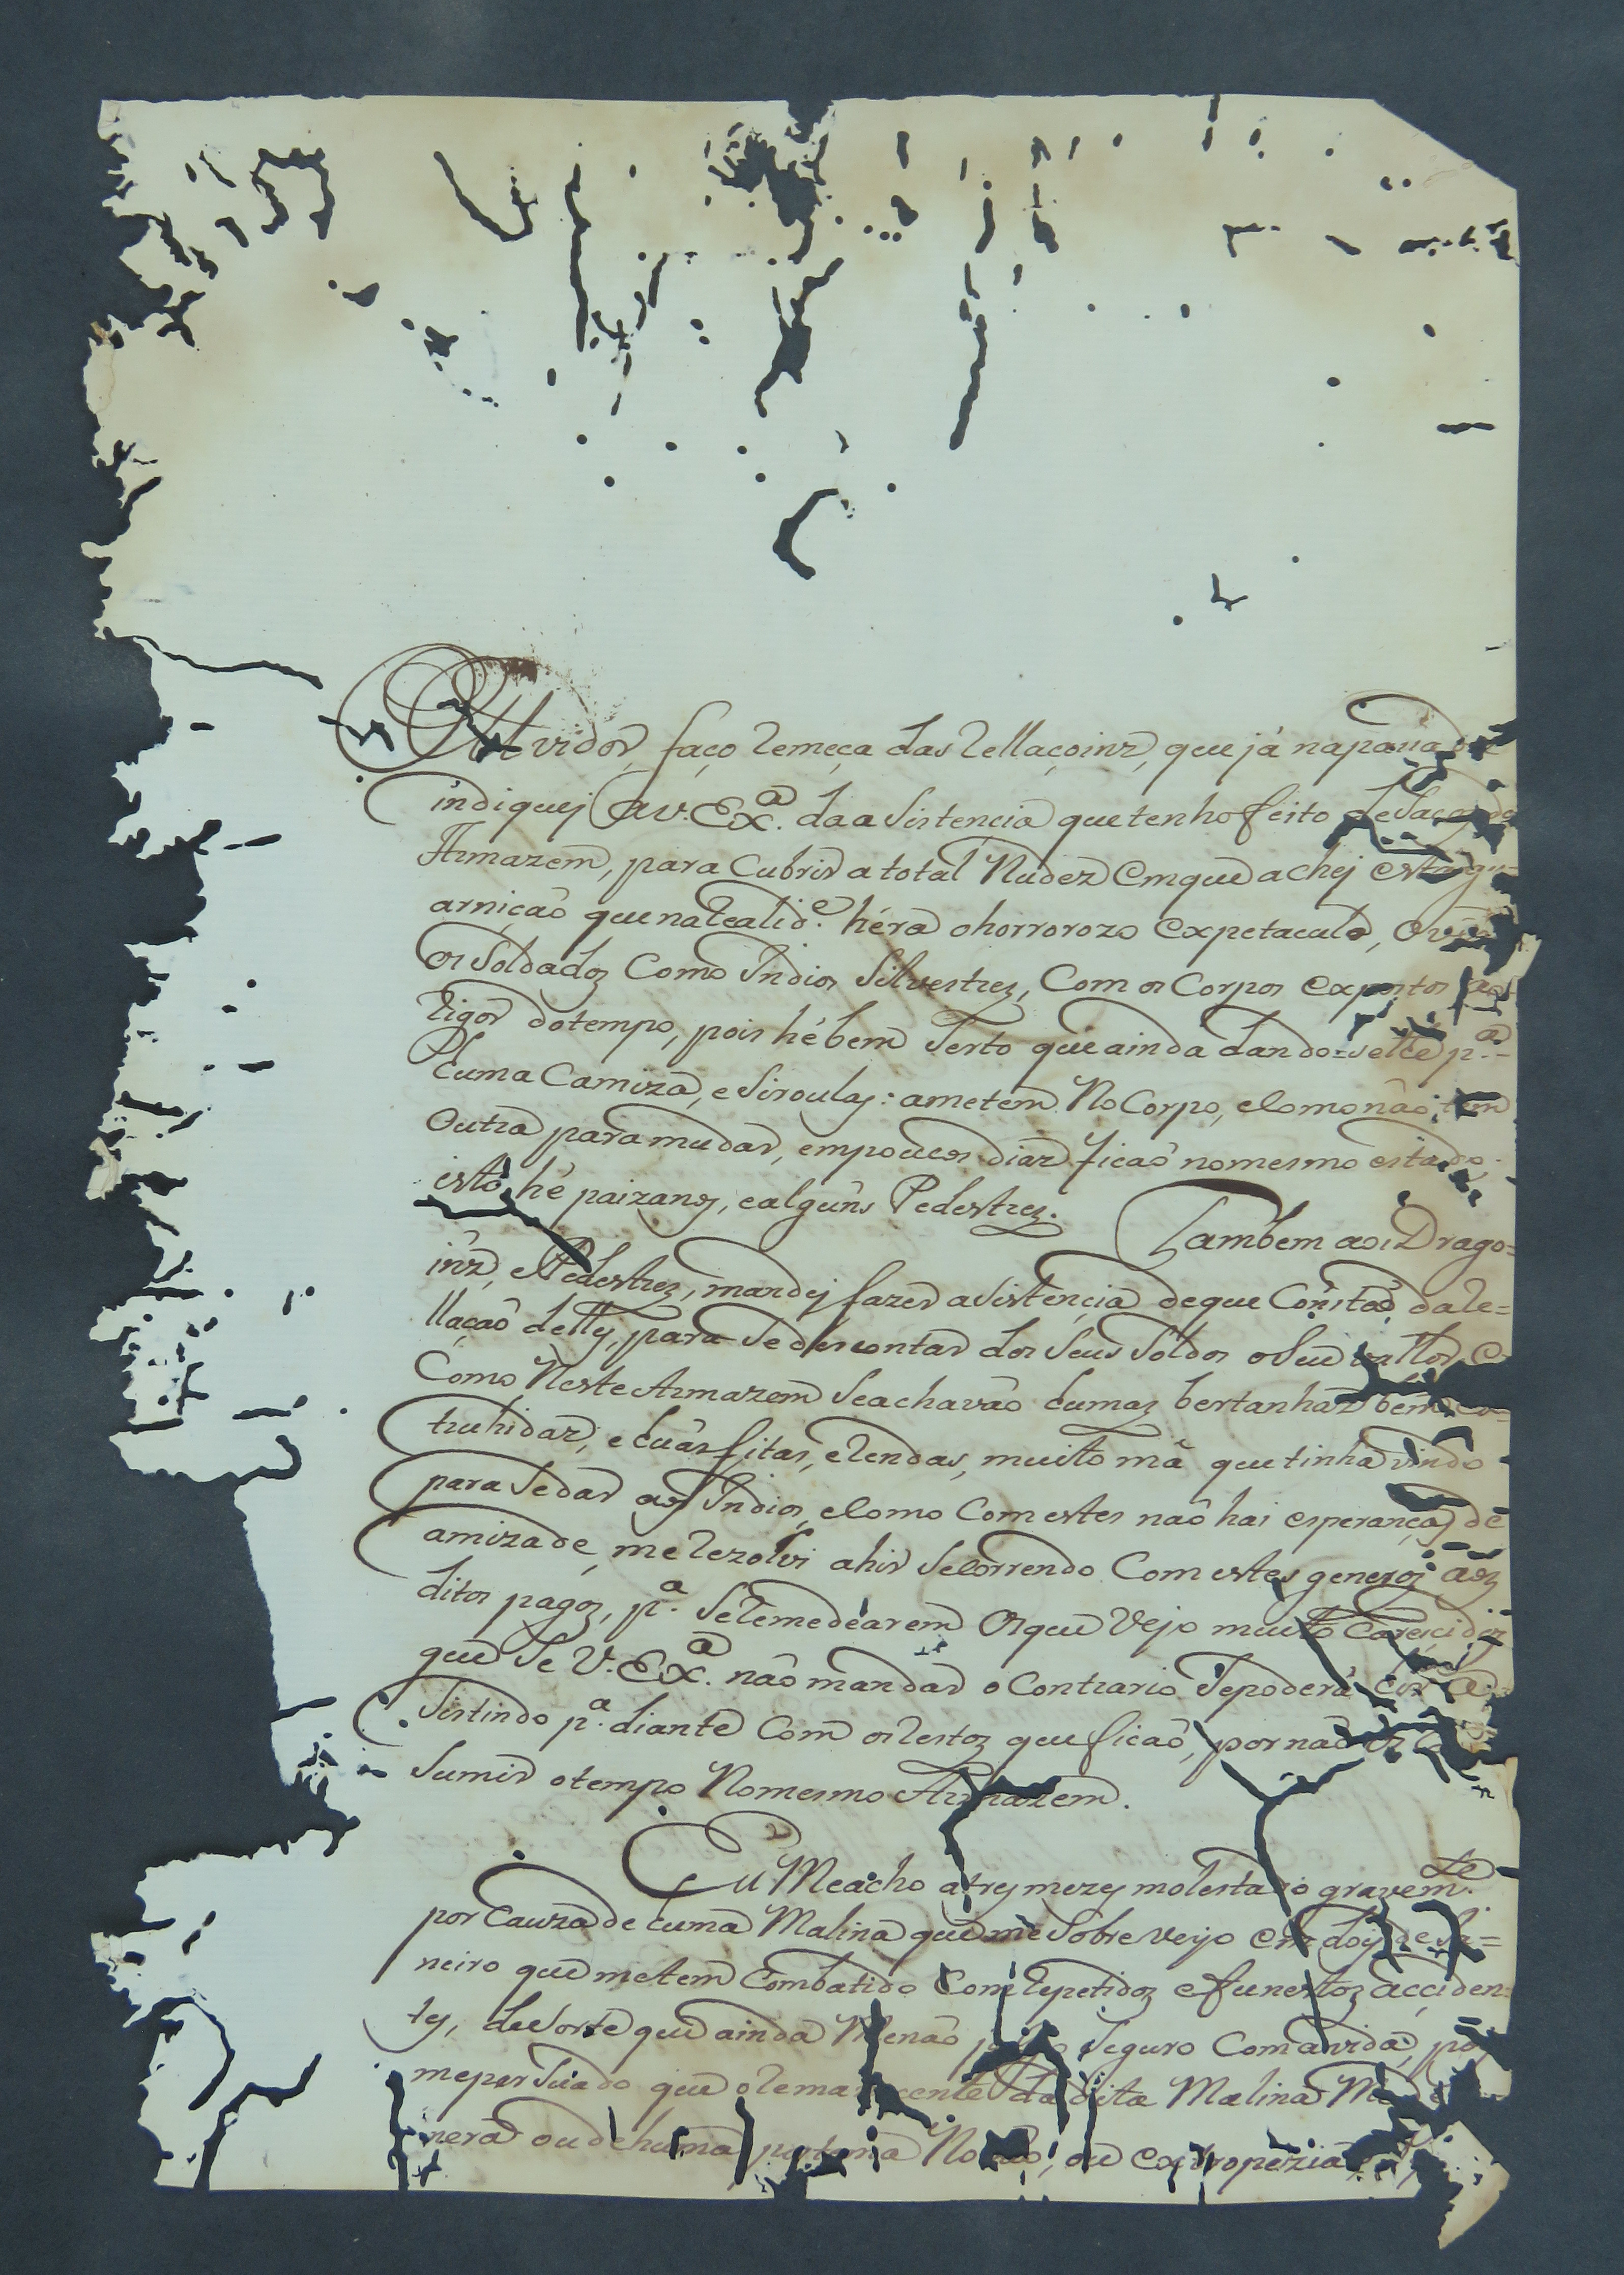 faço remeça das rellaçoinz, que já na para
indiquej a V. Exª. da a Sistencia que tenho feito
Armazem, para Cubrir a total Nudez em que achej esta gu-
arnição que na realidᵉ. héra o horrorozo expetaculo, o
os Soldados Como Indios Silvestres, Com os Corpos expostos ao
rigor do tempo, pois hé bem Serto que ainda dando=se lhe pª.
huma Camiza, e Siroulas: a metem No Corpo, e como não tem
Outra para mudar, em poucos diaz ficaõ no mesmo estado,
isto hé paizanos, e alguns Pedestres. Tambem aos Drago=
inz, e Pedestres, mandej fazer a Sistencia de que Constaõ da re=
llação delles, para Se descontar dos Seus Soldos o Seu vallor e
Como Neste Armazem Se achavão humas bertanhaz bem
truhidaz, e huãs fitas, e rendas, muito má que tinha vindo
para Se dar aos Indios, e como Com estes não hai esperanças de
amizade, me rezolvi a hir Secorrendo Com estes generos aos
ditos pagos, pª. Se remedearem Os que Vejo muito Carecidos
que Se V. Exª. não mandar o Contrario Se poderá hir a
Sistindo pª. diante Com os restos que ficaõ, por não os
Sumir o tempo No mesmo Armazem.
Eu Me acho a tres mezes molestado gravemᵗᵉ.
por Cauza de huma Malina que me Sobre veyo em dois de Ja=
neiro que me tem Combatido Com repetidos e funestos acciden=
tes, de Sorte que ainda Me não Seguro Com a vida,
me per Suado que o da dita Malina
nerá ou de huma ou